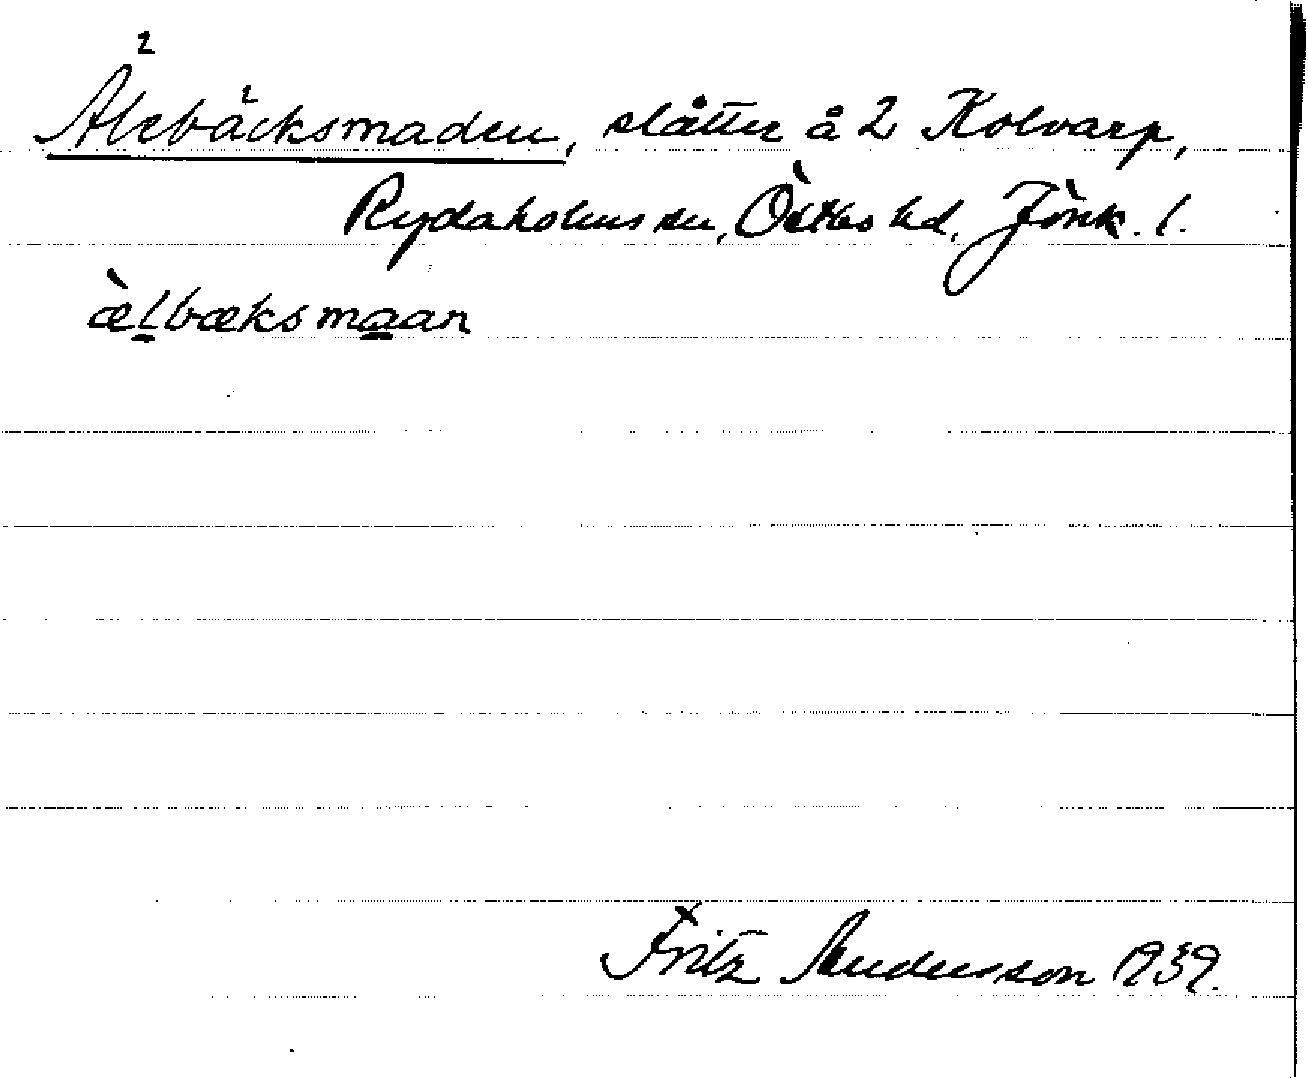 Älebäcksmaden, slåtter å 2 Kolvarp,
Rydaholms sn, Östbo hd, Jönk. l.
æ̀lbæksmaan
Fritz Andersson 1939.